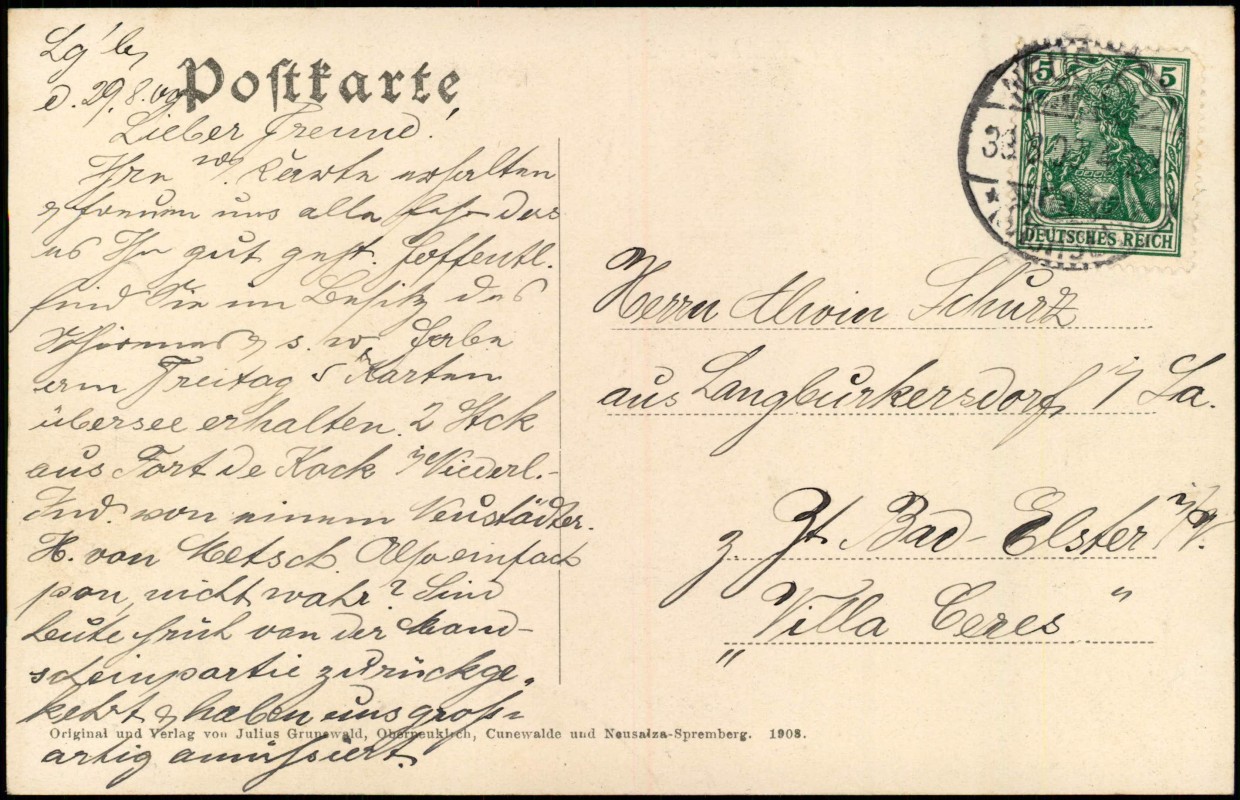 Postkarte
d. 29.8.09
Lieber Freund!
Ihre w. Karte erhalten
& freuen uns alle sehr das
es Ihn gut geht. Hoffentl.
sind Sie im Besitz des
s. w. Habe
Freitag 5 Karten
übersee erhalten. 2 Stck
aus Fort de Kock i/ Niederl.-
Ind. von einem Neustädter.
H. von Metsch. Also einfach
nicht wahr? Sind
heute früh von der Mond-
scheinpartie zurückge-
kehrt & haben uns groß-
artig amüssiert.
5 5
DEUTSCHES REICH
Herrn Alwin Schurz
aus Langburkersdorf i/ Sa.
z. Zt. Bad-Elster i/V.
"Villa Ceres"
Original und Verlag von Julius Grunewald, Oberneukirch, Cunewalde und Neusalza-Spremberg. 1908.